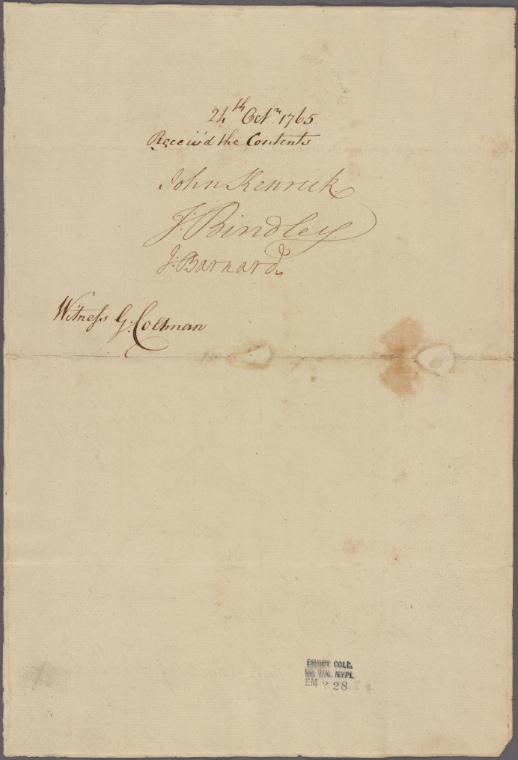 24th Octr 1765
Receiv'd the Contents
John Kenrick
J: Bindley
J: Barnard
Witness G. Coltman
EMMET COLL.
NYPL
EM 228